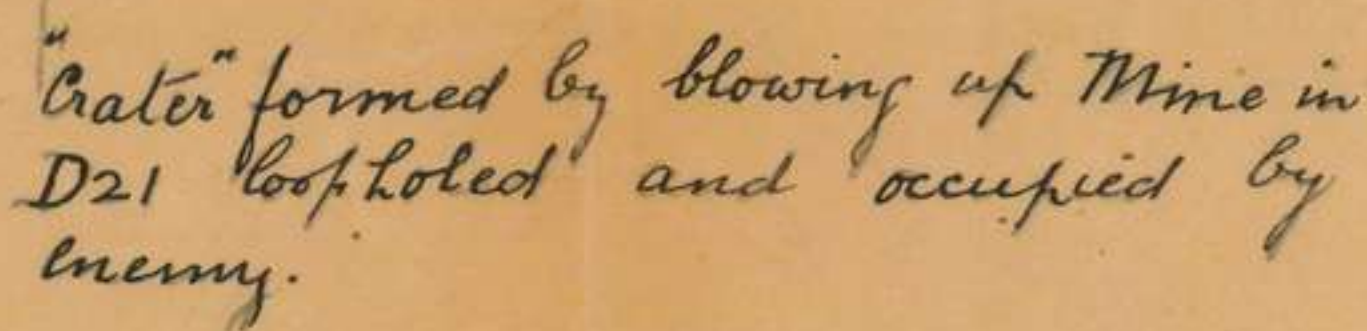 "Crater" formed by blowing up Mine in
D21 loopholed and occupied by
enemy.